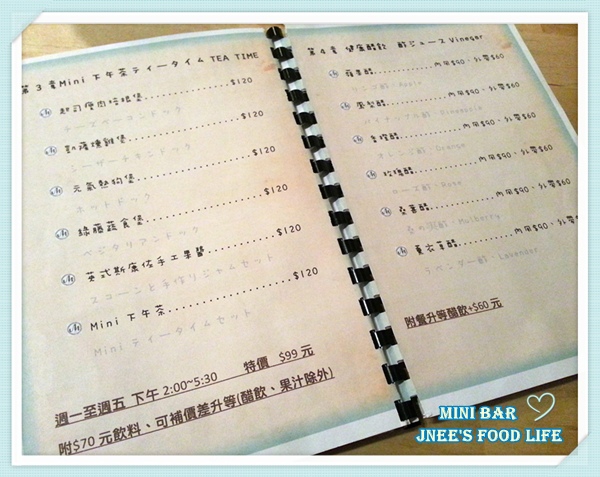 第3章Mini 下午茶ティータイム TEA TIME
起司優肉拉狼堡..............$120
チーズベーコンドック
凱薩燻雞堡..............$120
シーザーチキンドック
元氣熱狗堡..............$120
ホットドック
綠藤蔬食堡..............$120
ベジタリアンドック
英式斯康佐手工果醬..............$120
スコーンと手作りジャムセット
Mini 下午茶..............$120
Mini ティータイムセット
週一至週五 下午 2:00~5:30 特價 $99 元
附$70 元飲料、可補價差升等(醋飲、果汁除外)
第4章 健康醋飲 酢ジュース Vinegar
蘋果醋..............內用$90、外帶$60
リンゴ酢/Apple
鳳梨醋..............內用$90、外帶$60
パイナップル酢/Pineapple
香橙醋..............內用$90、外帶$60
オレンジ酢/Orange
玫瑰醋..............內用$90、外帶$60
ローズ酢/Rose
桑葚醋..............內用$90、外帶$60
桑の酢/Mulberry
薰衣草醋..............內用$90、外帶$60
ラベンダー酢/Lavender
附餐升等醋飲+$60 元
MINI BAR
JNEE'S FOOD LIFE